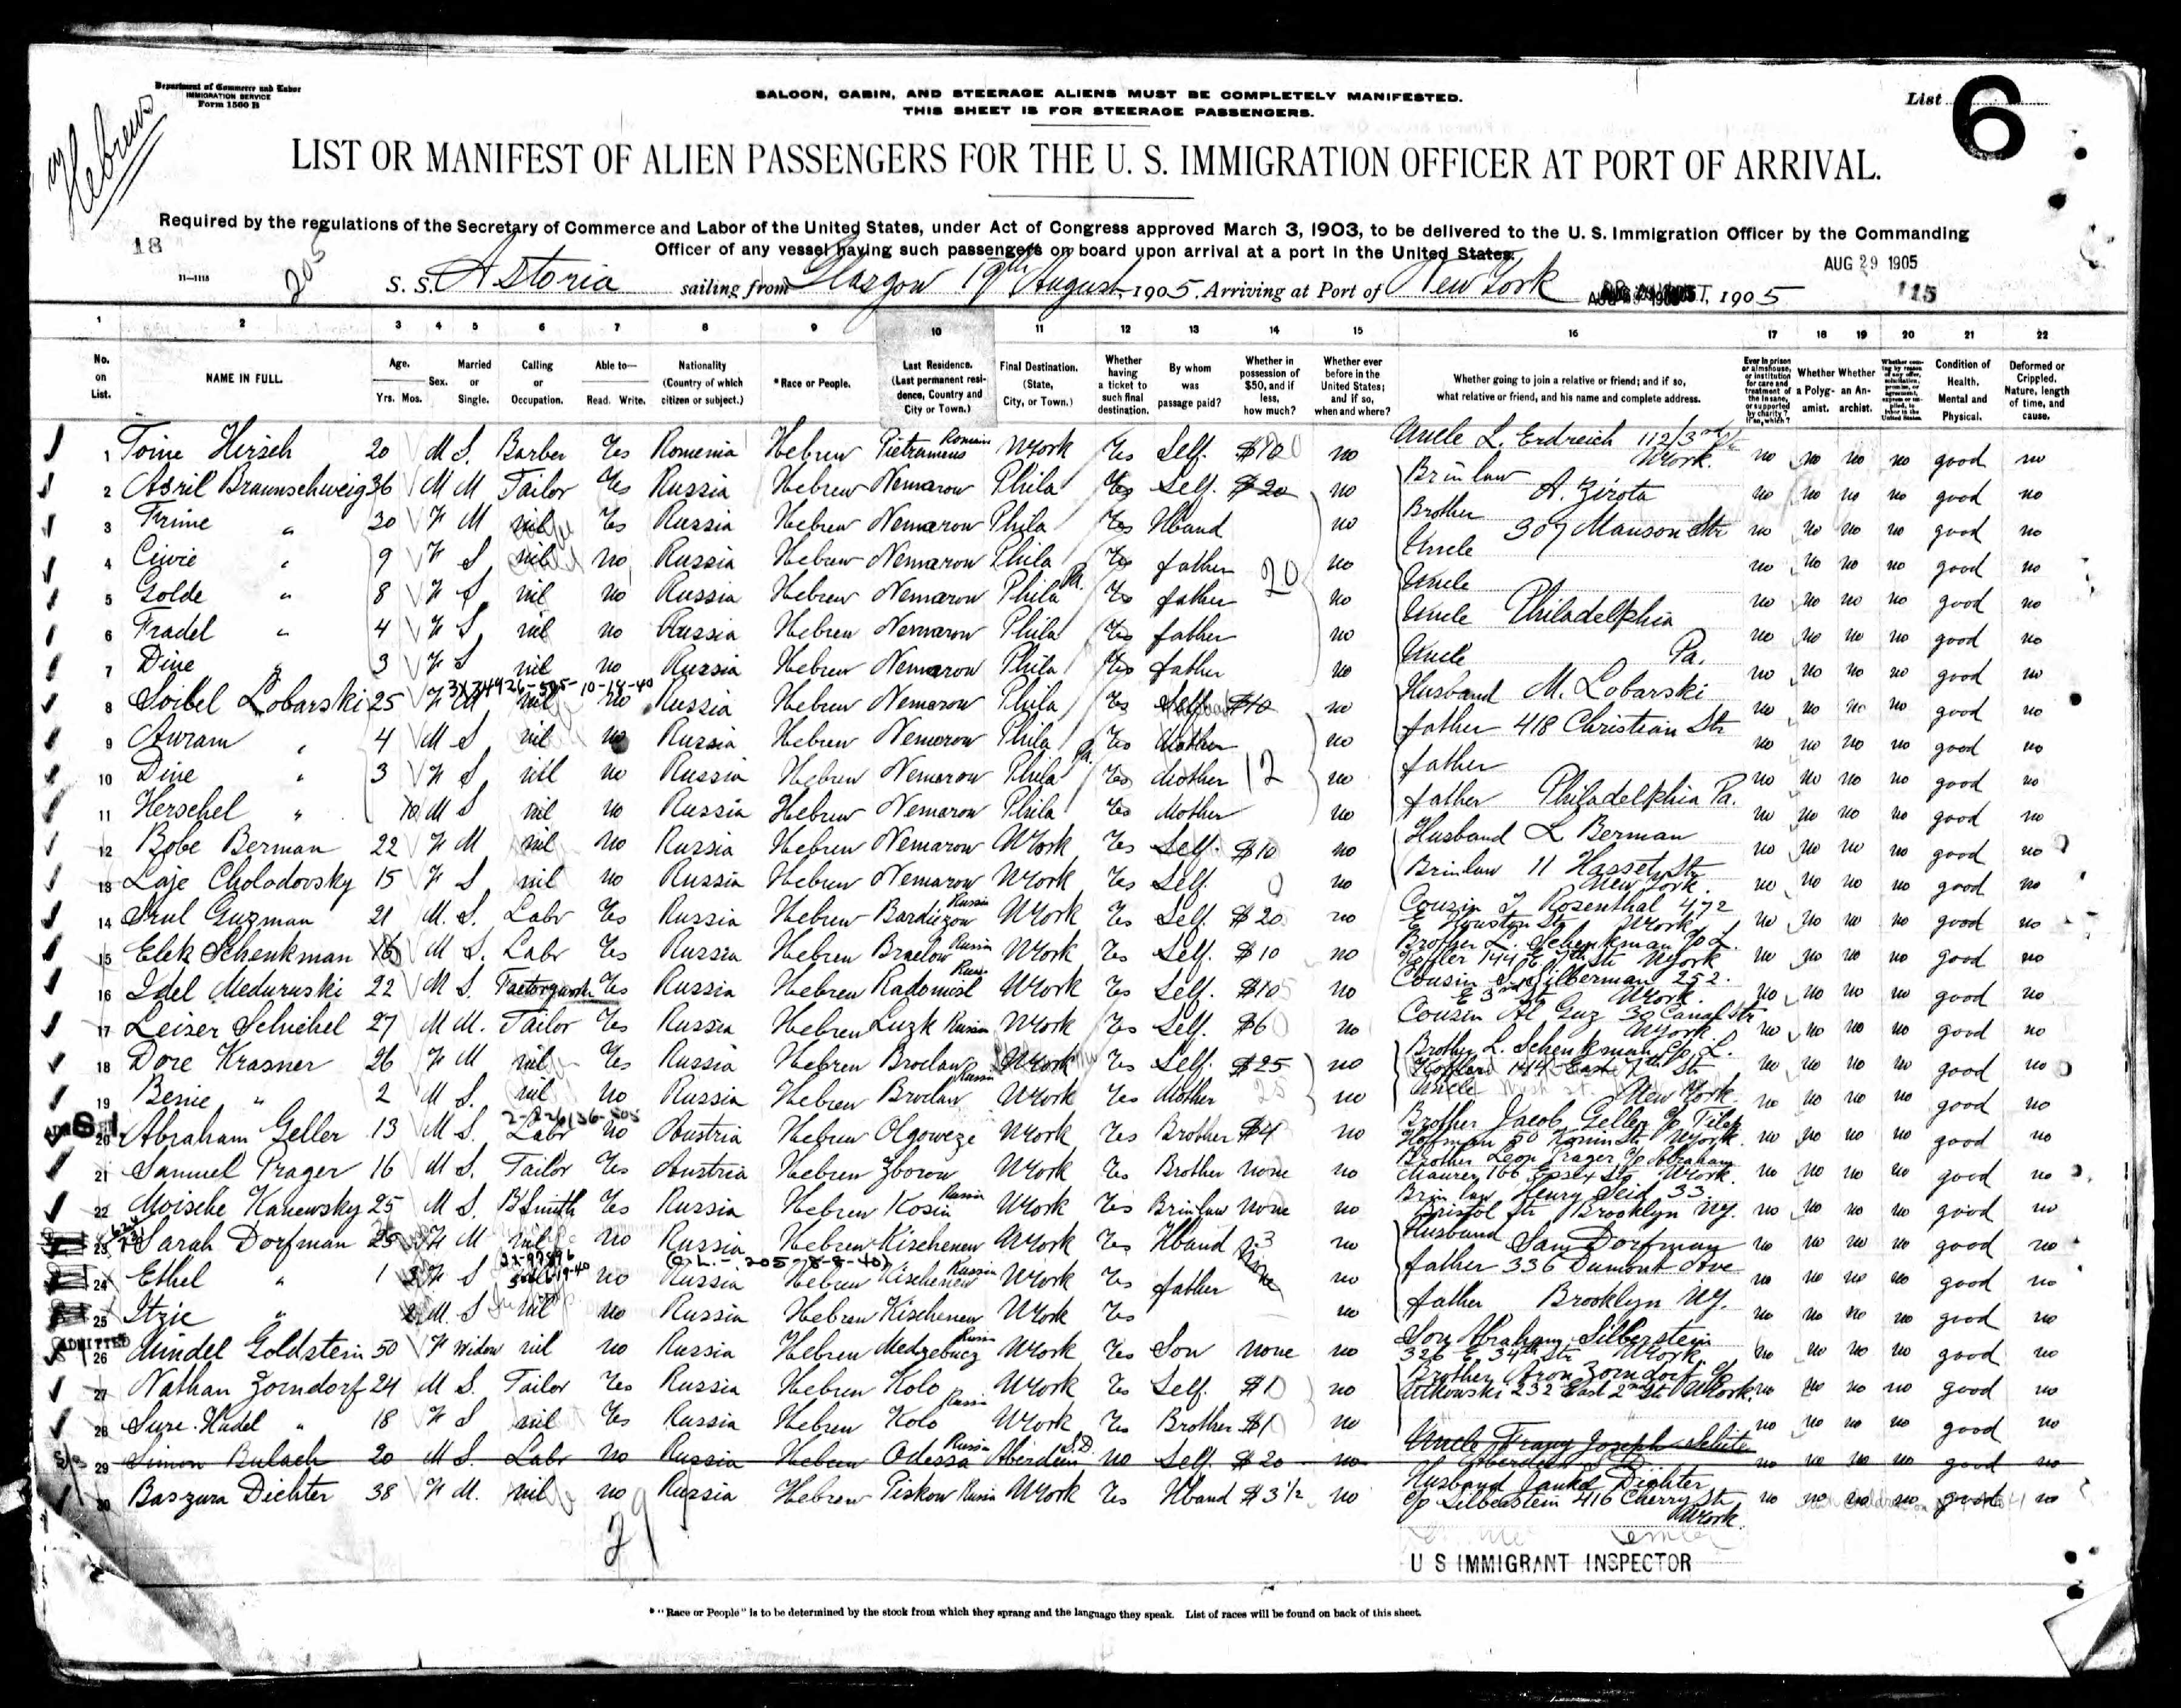 Department of Commerce and Labor
IMMIGRATION SERVICE
Form 1500 B
Hebrews
SALOON, CABIN, AND STEERAGE ALIENS MUST BE COMPLETELY MANIFESTED.
THIS SHEET IS FOR STEERAGE PASSENGERS.
List 6
LIST OR MANIFEST OF ALIEN PASSENGERS FOR THE U. S. IMMIGRATION OFFICER AT PORT OF ARRIVAL.
Required by the regulations of the Secretary of Commerce and Labor of the United States, under Act of Congress approved March 3, 1903, to be delivered to the U. S. Immigration Officer by the Commanding
Officer of any vessel having such passengers on board upon arrival at a port in the United States.
18
11-1118
205
AUG 29 1905
S. S. Astoria sailing from Glasgow 19th August, 1905. Arriving at Port of New York , 1905
115
1 2 3 4 5 6 7 8 9 10 11 12 13 14 15 16 17 18 19 20 21 22
No. on List. NAME IN FULL. Age. Yrs. Mos. Sex. Married or Single. Calling or Occupation. Able to— Read. Write. Nationality (Country of which citizen or subject.) *Race or People. Last Residence. (Last permanent residence, Country and City or Town.) Final Destination. (State, City, or Town.) Whether having a ticket to such final destination. By whom was passage paid? Whether in possession of $50, and if less, how much? Whether ever before in the United States; and if so, when and where? Whether going to join a relative or friend; and if so, what relative or friend, and his name and complete address. Ever in prison or almshouse, or institution for care and treatment of the insane, or supported by charity? If so, which? Whether a Polygamist. Whether an Anarchist. Whether coming by reason of any offer, solicitation, promise, or agreement, express or implied, to labor in the United States. Condition of Health, Mental and Physical. Deformed or Crippled. Nature, length of time, and cause.
1 Toine Hirsch 20 M S. Barber Yes Romenia Hebrew Romain NYork Yes Self. no Uncle L. Erdreich 112/3rd Str NYork. no no no no good no
2 Asril Braunschweig 36 M M Tailor Yes Russia Hebrew Nemarow Phila Yes Self. $20 no Brinlaw A. Zirota no no no no good no
3 Frime " 30 F M nil Yes Russia Hebrew Nemarow Phila Yes Hband no Brother 307 Manson Str no no no no good no
4 Ciwie " 9 F S nil no Russia Hebrew Nemarow Phila Yes father 20 no Uncle no no no no good no
5 Golde " 8 F S nil no Russia Hebrew Nemarow Phila Pa. Yes father no Uncle no no no no good no
6 Fradel " 4 F S nil no Russia Hebrew Nemarow Phila Yes father no Uncle Philadelphia no no no no good no
7 Dine " 3 F S nil no Russia Hebrew Nemarow Phila Yes father no Uncle Pa. no no no no good no
8 Soibel Lobarski 25 F M nil no Russia Hebrew Nemarow Phila Yes Self $10 no Husband M. Lobarski no no no no good no
9 Awram " 4 M S nil no Russia Hebrew Nemorow Phila Yes Mother no father 418 Christian Str no no no no good no
10 Dine " 3 F S nil no Russia Hebrew Nemarow Phila Pa. Yes Mother 12 no father no no no no good no
11 Herschel " M S nil no Russia Hebrew Nemarow Phila Yes Mother no father Philadelphia Pa. no no no no good no
12 Bobe Berman 22 F M nil no Russia Hebrew Nemarow NYork Yes Self. $10 no Husband L Berman no no no no good no
13 Laje Cholodovsky 15 F S nil no Russia Hebrew Nemarow NYork Yes Self. 0 no Brinlaw 11 Str New York. no no no no good no
14 Srul Guzman 21 M. S. Labr Yes Russia Hebrew Bardiezow Russia NYork Yes Self. $20 no Cousin J Rosenthal 472 E Houston Str NYork no no no no good no
15 Elek Schenkman 16 M S. Labr Yes Russia Hebrew Braelow Russia NYork Yes Self. $10 no Brother L. Schenkman c/o L. Koffler 144 E 7th Str NYork no no no no good no
16 Idel Meduruski 22 M S. Factorywork Yes Russia Hebrew Radomisl NYork Yes Self. $10 no Cousin Silberman 252. E 3rd Str NYork. no no no no good no
17 Leiser Schichel 27 M M. Tailor Yes Russia Hebrew Luzk Russia NYork Yes Self. $6 no Cousin Al Guz 30 Canal Str NYork no no no no good no
18 Dore Krasner 26 F M nil Yes Russia Hebrew Broclaw Russia NYork Yes Self. $25 no Brother L. Schenkman c/o L. Koffler 144 East 7th Str no no no no good no
19 Benie " 2 M S. nil no Russia Hebrew Broclaw NYork Yes Mother no Uncle New York. no no no no good no
20 Abraham Geller 13 M S. Labr no Austria Hebrew Olgoweze NYork Yes Brother $4 no Brother Jacob Geller c/o Hoffman 50 Str NYork. no no no no good no
21 Samuel Prager 16 M S. Tailor Yes Austria Hebrew Zborow NYork Yes Brother none no Brother Leon Prager c/o Abraham Maurer 166 Essex Str NYork. no no no no good no
22 Moische Kanewsky 25 M S. BSmith Yes Russia Hebrew Kosin Russia NYork Yes Brinlaw none no Brin law Henry Seid 33 Bristol Str Brooklyn NY. no no no no good no
23 Sarah Dorfman 25 F M nil no Russia Hebrew Kischenew NYork Yes Hband no Husband Sam Dorfman no no no no good no
24 Ethel " 1 F S no Russia Hebrew Kischenew Russia NYork Yes father no father 336 Dumont Ave no no no no good no
25 Itzie " M. S nil no Russia Hebrew Kischenew NYork Yes no father Brooklyn NY. no no no no good no
ADMITTED
26 Mindel Goldstein 50 F Widow nil no Russia Hebrew Medzebucz Russia NYork Yes Son none no Son Abraham Silberstein 326 E 34th Str NYork no no no no good no
27 Nathan Zorndorf 24 M S. Tailor Yes Russia Hebrew Kolo NYork Yes Self. $1 no Brother Aron Zorndorf c/o Litkowski 232 East 2nd Str NYork. no no no no good no
28 Sure Hudel " 18 F S nil Yes Russia Hebrew Kolo Russia NYork Yes Brother $1 no no no no no good no
29 Simon Bulach 20 M S. Labr no Russia Hebrew Odessa Russia Aberdein S.D. no Self. $20 no Uncle Franz Joseph Aberdein S.D. no no no no good no
30 Baszura Dichter 38 F M. nil no Russia Hebrew Piskow Russia NYork Yes Hband $3 1/2 no Husband Janke Dichter c/o Silberstein 416 Cherry Str NYork. no no no no good no
29
U S IMMIGRANT INSPECTOR
* "Race or People" is to be determined by the stock from which they sprang and the language they speak. List of races will be found on back of this sheet.